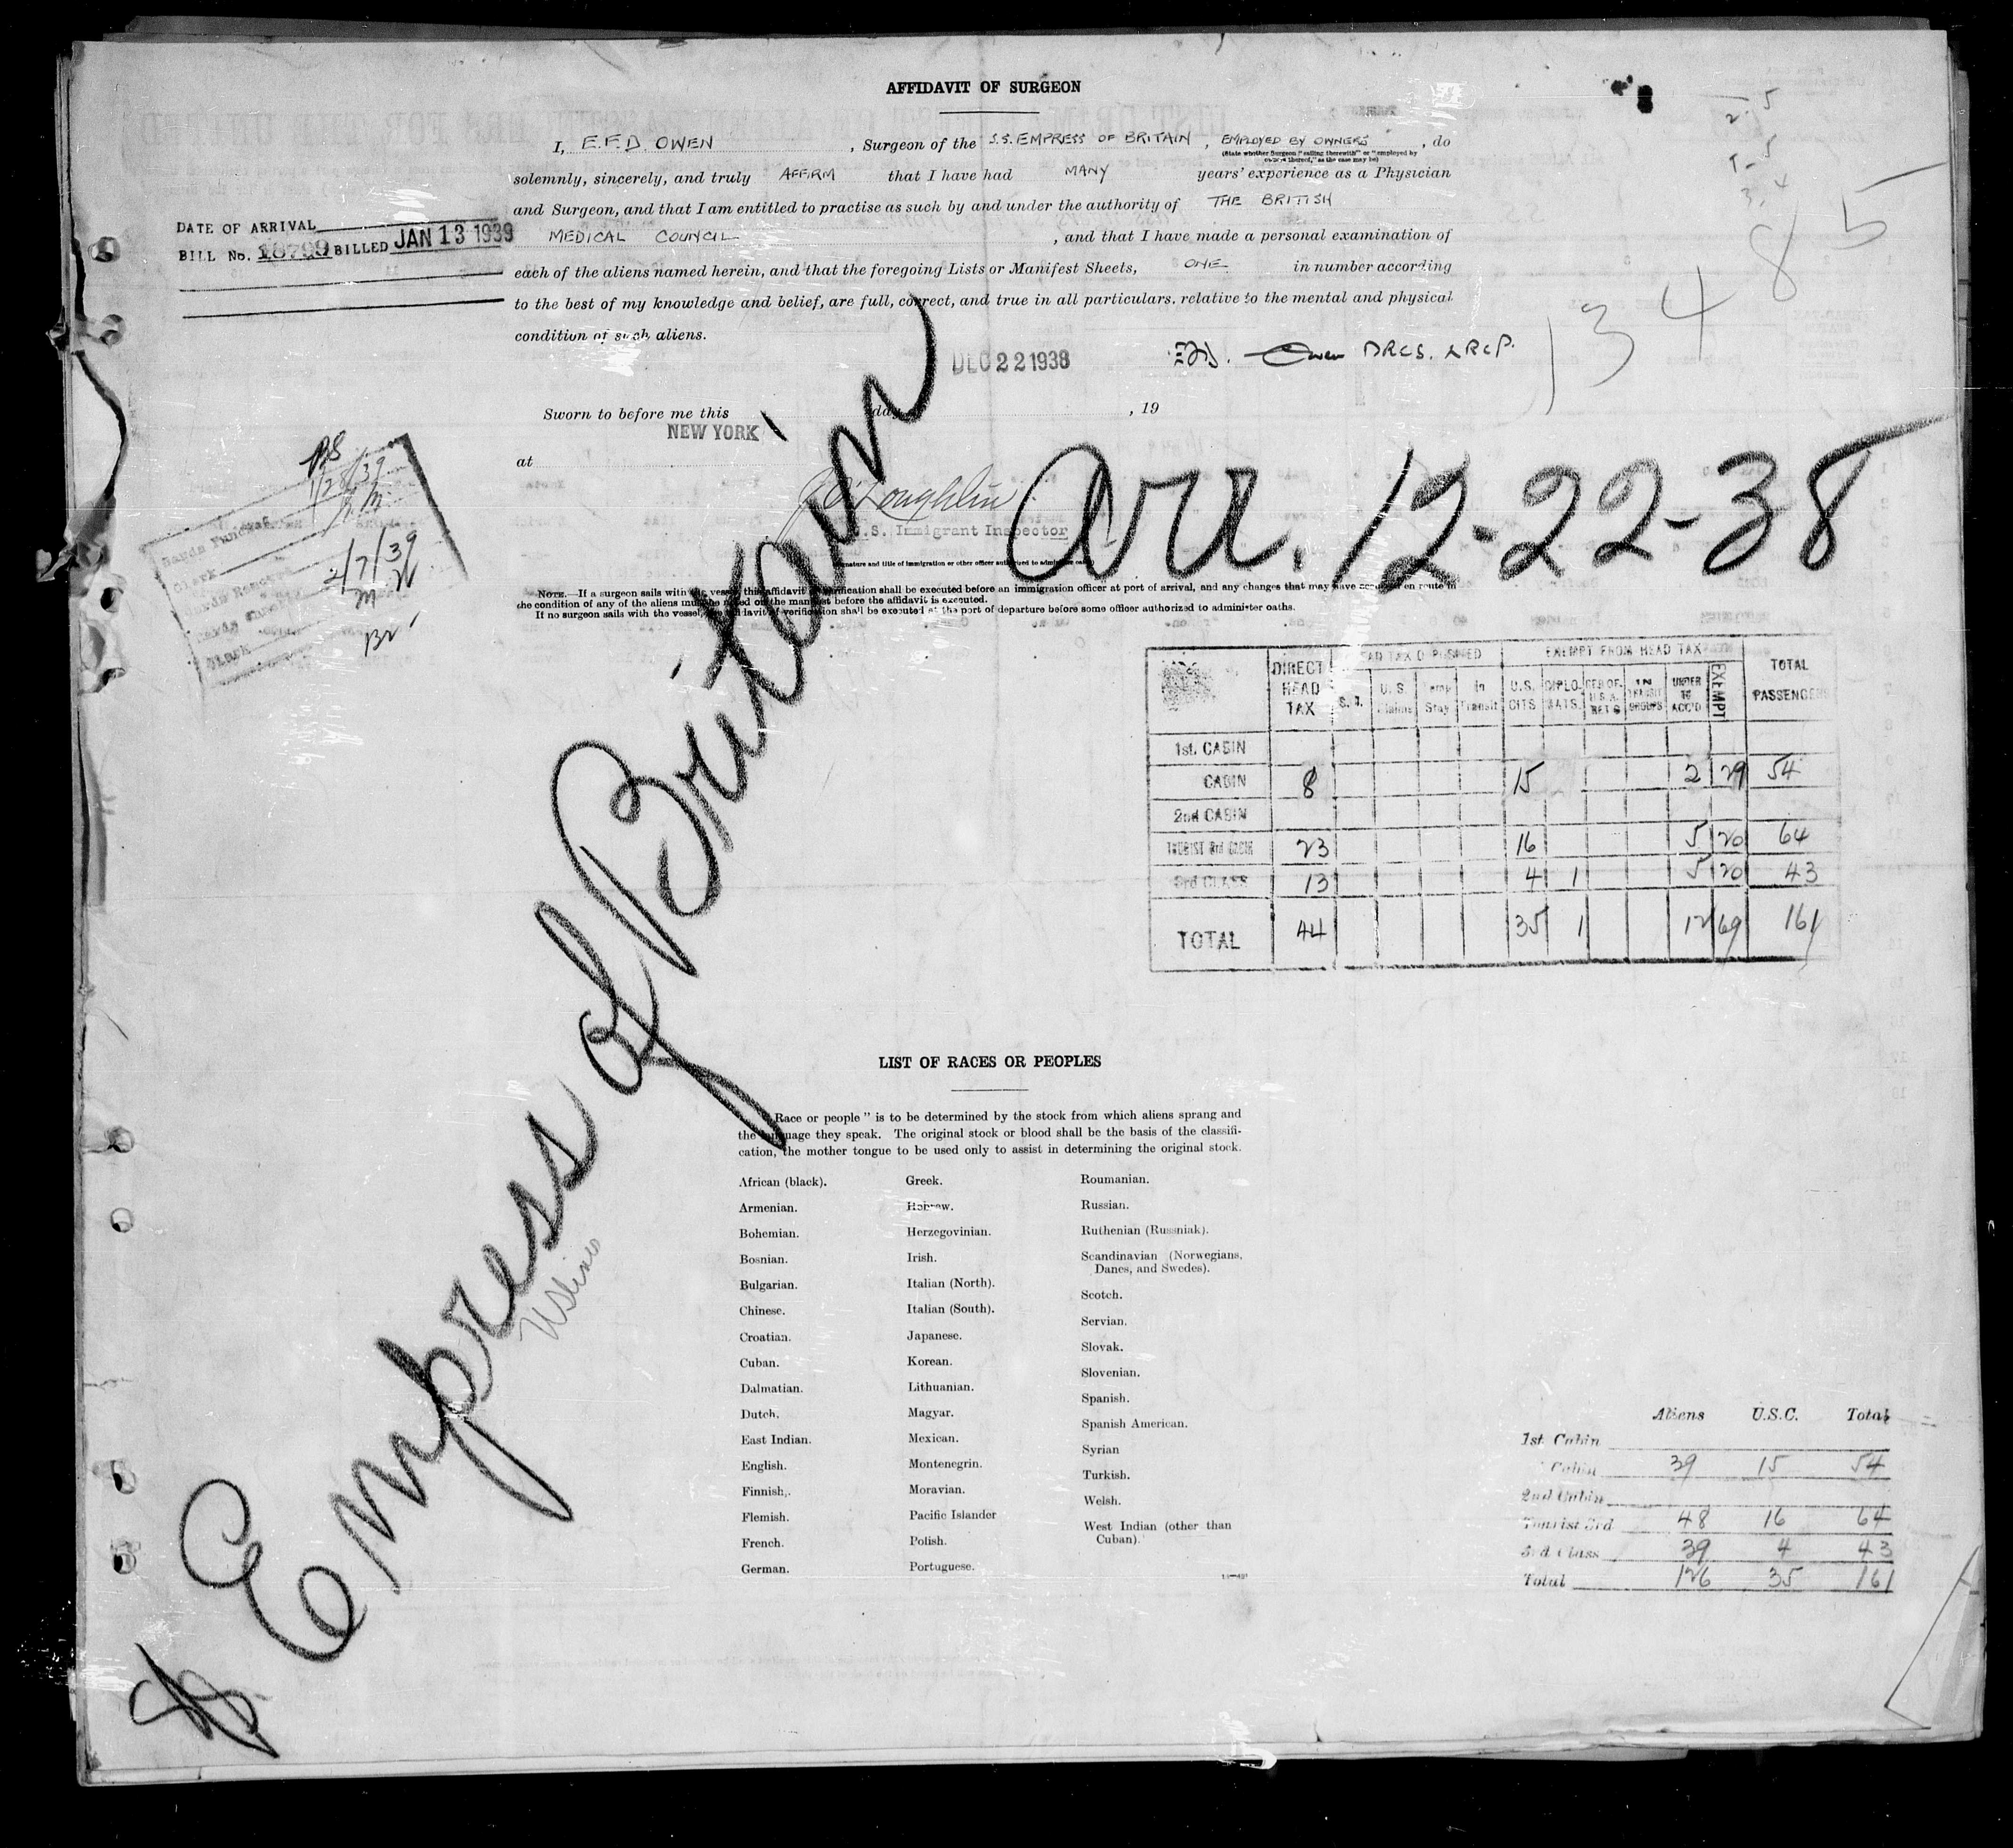 AFFIDAVIT OF SURGEON
I, E.F.D. OWEN, Surgeon of the S.S. EMPRESS OF BRITAIN, EMPLOYED BY OWNERS, do
(State whether Surgeon "sailing therewith" or "employed by
owners thereof," as the case may be)
solemnly, sincerely, and truly AFFIRM that I have had MANY years' experience as a Physician
and Surgeon, and that I am entitled to practise as such by and under the authority of THE BRITISH
MEDICAL COUNCIL, and that I have made a personal examination of
each of the aliens named herein, and that the foregoing Lists or Manifest Sheets, ONE in number according
to the best of my knowledge and belief, are full, correct, and true in all particulars, relative to the mental and physical
condition of such aliens.
DATE OF ARRIVAL
BILL No. 18799 BILLED JAN 13 1939
2.5
1-5
3.4
13485
DEC 22 1938
Owen
Sworn to before me this day , 19
NEW YORK
at
O'Loughlin
U.S. Immigrant Inspector
(Signature and title of immigration or other officer authorized to administer oaths)
NOTE.—If a surgeon sails with the vessel this affidavit of verification shall be executed before an immigration officer at port of arrival, and any changes that may have occurred en route in
the condition of any of the aliens must be noted on the manifest before the affidavit is executed.
If no surgeon sails with the vessel, the affidavit of verification shall be executed at the port of departure before some officer authorized to administer oaths.
1/28/39
Clerk
2/7/39
Clerk
Arr. 12-22-38
SS Empress of Britain
US lines
DIRECT HEAD TAX HEAD TAX EXEMPT FROM HEAD TAX TOTAL PASSENGERS
U.S. Claims Temp Stay In Transit U.S. CITS DIPLOMATS IN TRANSIT GROUPS UNDER 16 ACC'D EXEMPT
1st. CABIN
CABIN 8 15 2 29 54
2nd CABIN
TOURIST 3rd CABIN 23 16 5 20 64
3rd CLASS 13 4 1 5 20 43
TOTAL 44 35 1 12 69 161
LIST OF RACES OR PEOPLES
"Race or people" is to be determined by the stock from which aliens sprang and
the language they speak. The original stock or blood shall be the basis of the classifi-
cation, the mother tongue to be used only to assist in determining the original stock.
African (black).
Armenian.
Bohemian.
Bosnian.
Bulgarian.
Chinese.
Croatian.
Cuban.
Dalmatian.
Dutch.
East Indian.
English.
Finnish.
Flemish.
French.
German.
Greek.
Hebrew.
Herzegovinian.
Irish.
Italian (North).
Italian (South).
Japanese.
Korean.
Lithuanian.
Magyar.
Mexican.
Montenegrin.
Moravian.
Pacific Islander
Polish.
Portuguese.
Roumanian.
Russian.
Ruthenian (Russniak).
Scandinavian (Norwegians,
Danes, and Swedes).
Scotch.
Servian.
Slovak.
Slovenian.
Spanish.
Spanish American.
Syrian
Turkish.
Welsh.
West Indian (other than
Cuban).
Aliens U.S.C. Total
1st. Cabin
Cabin 39 15 54
2nd Cabin
Tourist 3rd 48 16 64
3rd Class 39 4 43
Total 126 35 161